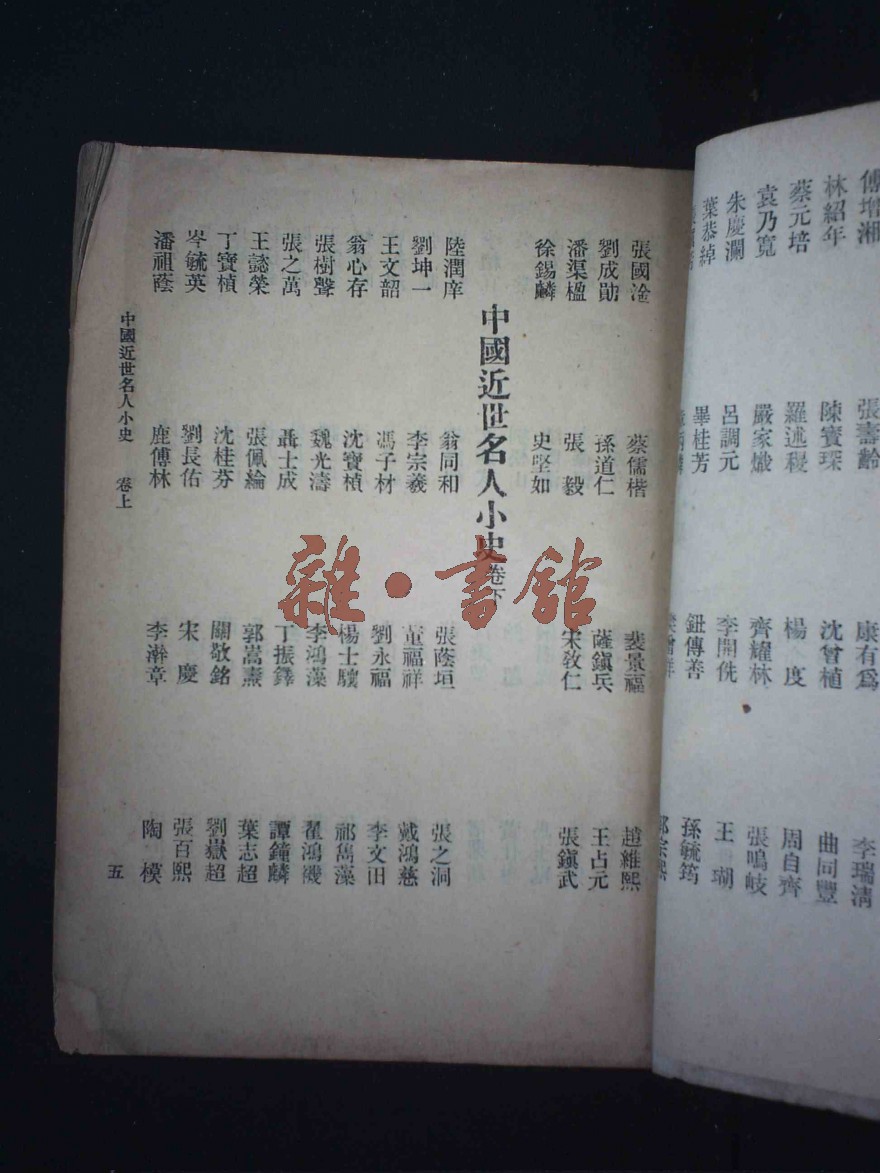 傅增湘 張壽齡 康有爲 李瑞清
林紹年 陳寶琛 沈曾植 曲同豐
蔡元培 羅述稷 楊度 周自齊
袁乃寬 嚴家熾 齊耀林 張鳴岐
朱慶瀾 呂調元 李開侁 王瑚
葉恭綽 畢桂芳 鈕傳善 孫毓筠
張國淦 蔡儒楷 裴景福 趙維熙
劉成勛 孫道仁 薩鎭兵 王占元
潘渠楹 張毅 宋敎仁 張鎭武
徐錫麟 史堅如
中國近世名人小史卷下
陸潤庠 翁同和 張蔭垣 張之洞
劉坤一 李宗羲 董福祥 戴鴻慈
王文韶 馮子材 劉永福 李文田
翁心存 沈寶楨 楊士驤 祁雋藻
張樹聲 魏光濤 李鴻藻 瞿鴻禨
張之萬 聶士成 丁振鐸 譚鐘麟
王懿榮 張佩綸 郭嵩燾 葉志超
丁寶楨 沈桂芬 閻敬銘 劉嶽超
岑毓英 劉長佑 宋慶 張百熙
潘祖蔭 鹿傅林 李瀚章 陶模
中國近世名人小史 卷上 五
雜·書館